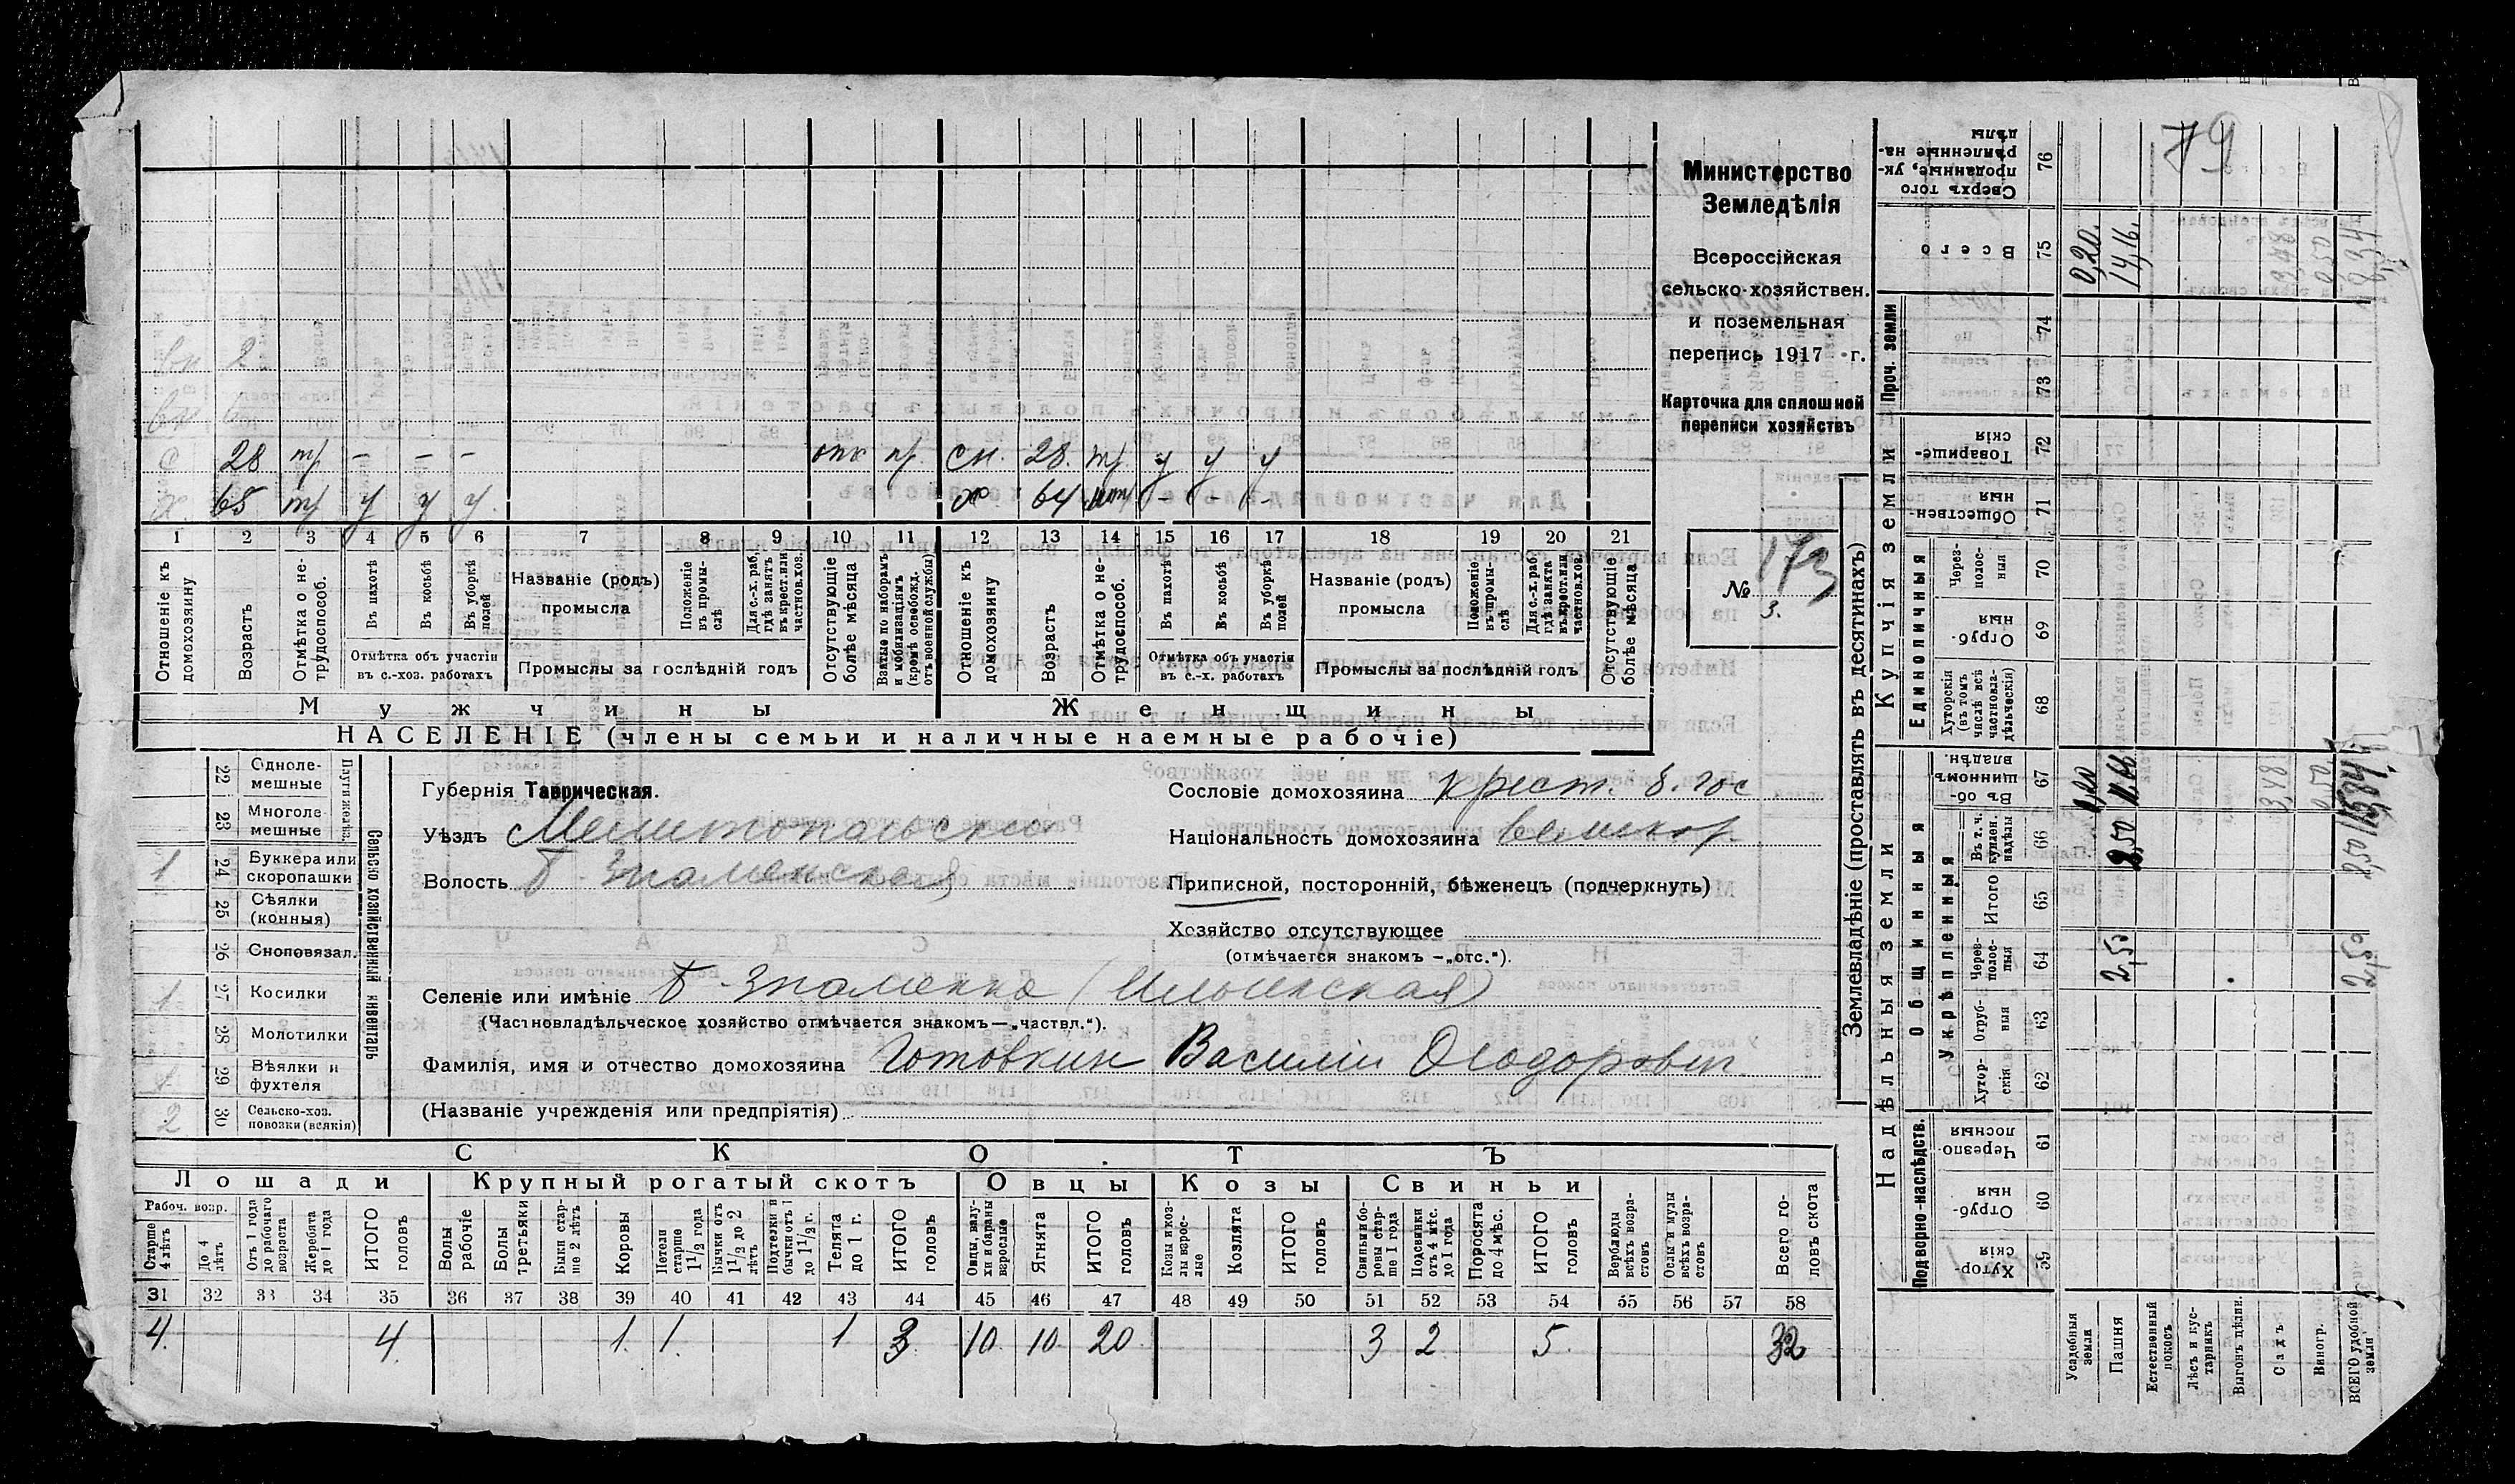 Министерство
Земледѣлія
Всероссійская
сельско-хозяйствен.
и поземельная
перепись 1917 г.
Карточка для сплошной
переписи хозяйствъ
№ 173
3.
79
вн 2
вн 6
с 28 тр - - - отс пр сн. 28. тр у у у
х. 65 тр у у у. х 64 нтр - - -
1 2 3 4 5 6 7 8 9 10 11 12 13 14 15 16 17 18 19 20 21
Отношеніе къ домохозяину
Возрастъ
Отмѣтка о не-трудоспособ.
Въ пахотѣ
Въ косьбѣ
Въ уборкѣ полей
Отмѣтка объ участіи въ с.-хоз. работахъ
Названіе (родъ) промысла
Положеніе въ промы-слѣ
Для с.-х. раб. гдѣ занятъ въ крест. или частнов. хоз.
Промыслы за послѣдній годъ
Отсутствующіе болѣе мѣсяца
Взятые по наборамъ и мобилизаціямъ (кромѣ освобожд. отъ военной службы)
Отношеніе къ домохозяину
Возрастъ
Отмѣтка о не-трудоспособ.
Въ пахотѣ
Въ косьбѣ
Въ уборкѣ полей
Отмѣтка объ участіи въ с.-х. работахъ
Названіе (родъ) промысла
Положеніе въ промы-слѣ
Для с.-х. раб. гдѣ занята въ крест. или частнов. хоз.
Промыслы за послѣдній годъ
Отсутствующіе болѣе мѣсяца
Мужчины Женщины
НАСЕЛЕНІЕ (члены семьи и наличные наемные рабочіе)
Сельско хозяйственный инвентарь
Плуги желѣз.
22 Одноле-мешные
23 Многоле-мешные
1 24 Буккера или скоропашки
25 Сѣялки (конныя)
26 Сноповязал.
1 27 Косилки
28 Молотилки
1 29 Вѣялки и фухтеля
2 30 Сельско-хоз. повозки (всякія)
Губернія Таврическая.
Уѣздъ Мелитопольскій
Волость Б-Знаменская
Сословіе домохозяина крест. б. гос
Національность домохозяина великор.
Приписной, посторонній, бѣженецъ (подчеркнуть)
Хозяйство отсутствующее
(отмѣчается знакомъ —„отс.“).
Селеніе или имѣніе Б-Знаменка (Ильинская)
(Частновладѣльческое хозяйство отмѣчается знакомъ—„частвл.“).
Фамилія, имя и отчество домохозяина Готовкин Василій Ѳеодоровичъ
(Названіе учрежденія или предпріятія)
СКОТЪ
Лошади Крупный рогатый скотъ Овцы Козы Свиньи
Рабоч. возр.
Старше 4 лѣтъ
До 4 лѣтъ
Отъ 1 года до рабочаго возраста
Жеребята до 1 года
ИТОГО головъ
Волы рабочіе
Волы третьяки
Быки стар-ше 2 лѣтъ
Коровы
Нетели старше 1 1/2 года
Бычки отъ 1 1/2 до 2 лѣтъ
Подтелки и бычки отъ 1 до 1 1/2 г.
Телята до 1 г.
ИТОГО головъ
Овцы, валу-хи и бараны взрослые
Ягнята
ИТОГО головъ
Козы и коз-лы взрос-лые
Козлята
ИТОГО головъ
Свиньи и бо-ровы стар-ше 1 года
Подсвинки отъ 4 мѣс. до 1 года
Поросята до 4 мѣс.
ИТОГО головъ
Верблюды всѣхъ возра-стовъ
Ослы и мулы всѣхъ возра-стовъ
Всего го-ловъ скота
31 32 33 34 35 36 37 38 39 40 41 42 43 44 45 46 47 48 49 50 51 52 53 54 55 56 57 58
4. 4. 1. 1. 1 3 10. 10. 20 3 2 5. 32
Землевладѣніе (проставлять въ десятинахъ)
Надѣльныя земли
Купчія земли
Проч. земли
Подворно-наслѣдств.
Общинныя
Укрѣпленныя
Единоличныя
59 Хутор-скія
60 Отруб-ныя
61 Черезпо-лосныя
62 Хутор-скія
63 Отруб-ныя
64 Через-полос-ныя
65 Итого
66 Въ т. ч. куплен. надѣлы
67 Въ об-щинномъ владѣн.
68 Хуторскія (въ томъ числѣ всѣ частновла-дѣльческія)
69 Отруб-ныя
70 Через-полос-ныя
71 Обществен-ныя
72 Товарище-скія
73
74
75 Всего
76 Сверхъ того проданные, ук-рѣпленные на-дѣлы
Усадебныя земли 0,20.
Пашня 2,50 11,66 14,16.
Естественный покосъ
Лѣсъ и кус-тарникъ
Выгонъ цѣлин.
Садъ
Виногр.
ВСЕГО удобной земли